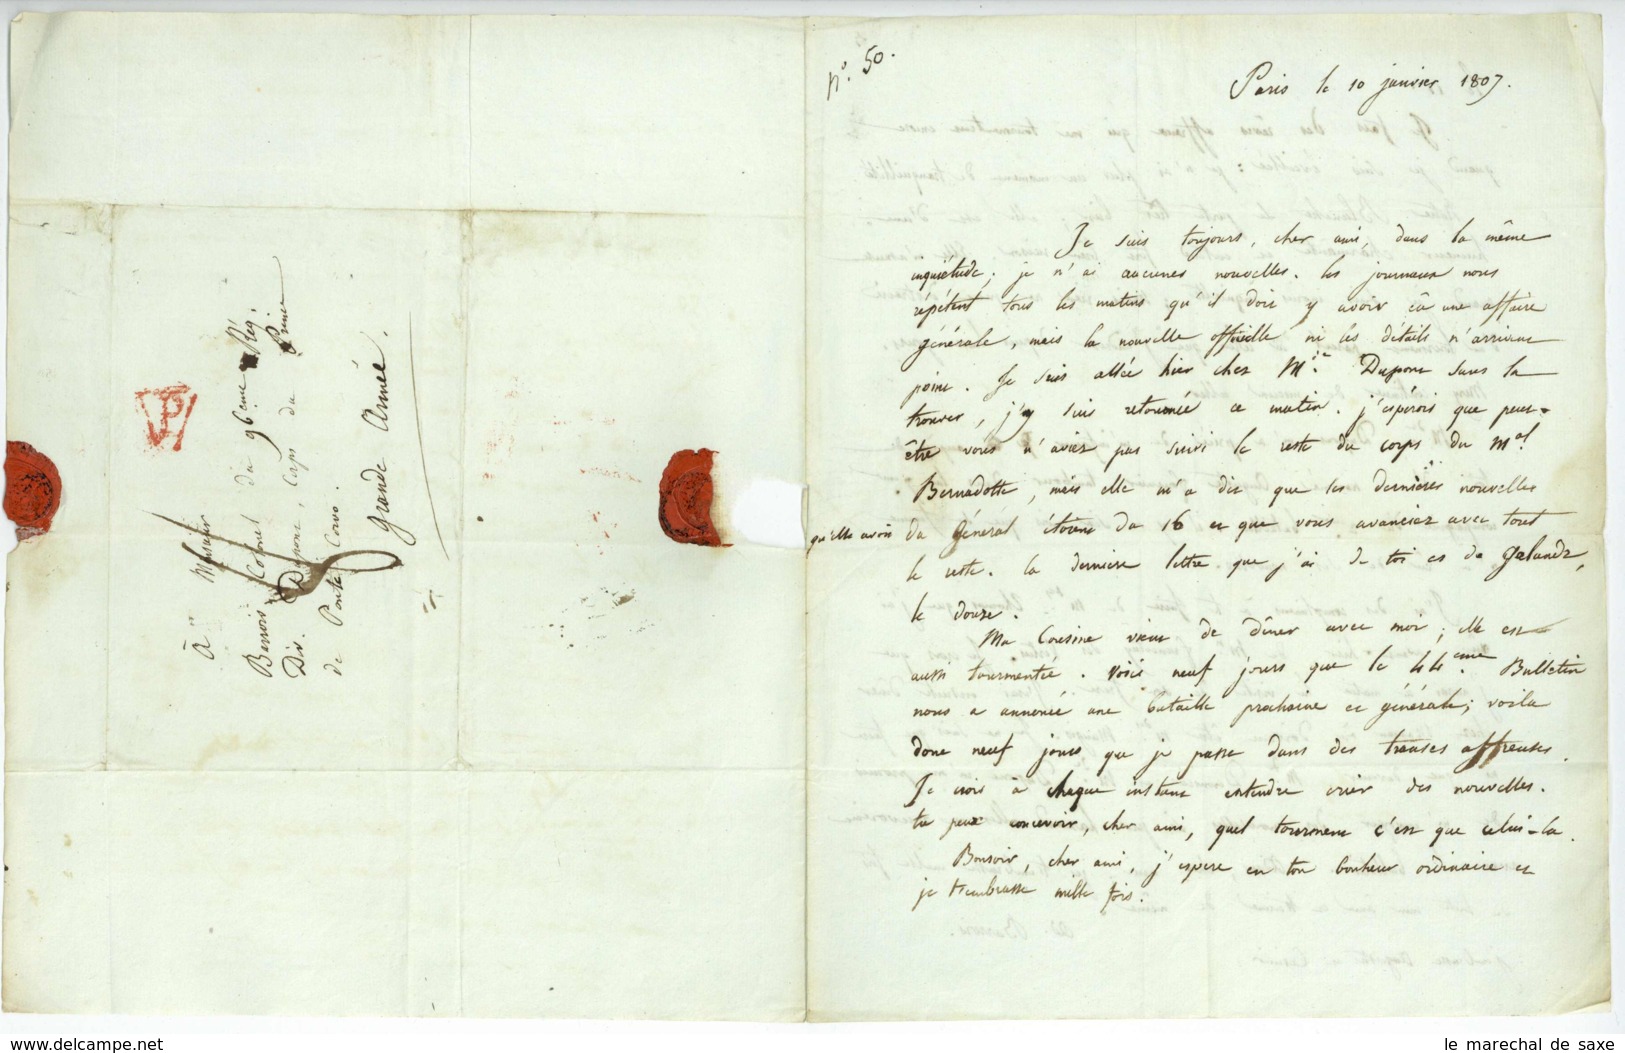 N.° 50.
Paris le 10 janvier 1807.
Je suis toujours, cher ami, dans la même
inquiétude; je n'ai aucunes nouvelles. les journaux nous
répétent tous les matins qu'il doit y avoir eû une affaire
générale, mais la nouvelle officielle ni les détails n'arrivent
point. Je suis allée hier chez M.de Dupont sans la
trouver, j'y suis retournée ce matin. j'esperois que peut-
être vous n'aviez pas suivi le reste du corps du Mal
Bernadotte, mais elle m'a dit que les dernières nouvelles
qu'elle avoit du Général étoient du 16 et que vous avanciez avec tout
le reste. la derniere lettre que j'ai de toi est de
le douze.
Ma Cousine vient de dîner avec moi; elle est
aussi tourmentée. Voici neuf jours que le 44.eme Bulletin
nous a annoncé une bataille prochaine et générale; voila
donc neuf jours que je passe dans des transes affreuses.
Je crois à chaque instant entendre crier des nouvelles.
tu peux concevoir, cher ami, quel tourment c'est que celui-la.
Bonsoir, cher ami, j'espere en ton bonheur ordinaire et
je t'embrasse mille fois.
à Monsieur
Barrois Colonel du 96eme Rég.
Div. Dupont, Corps du Prince
de Ponte Corvo.
Grande Armée.
P
le marechal de saxe